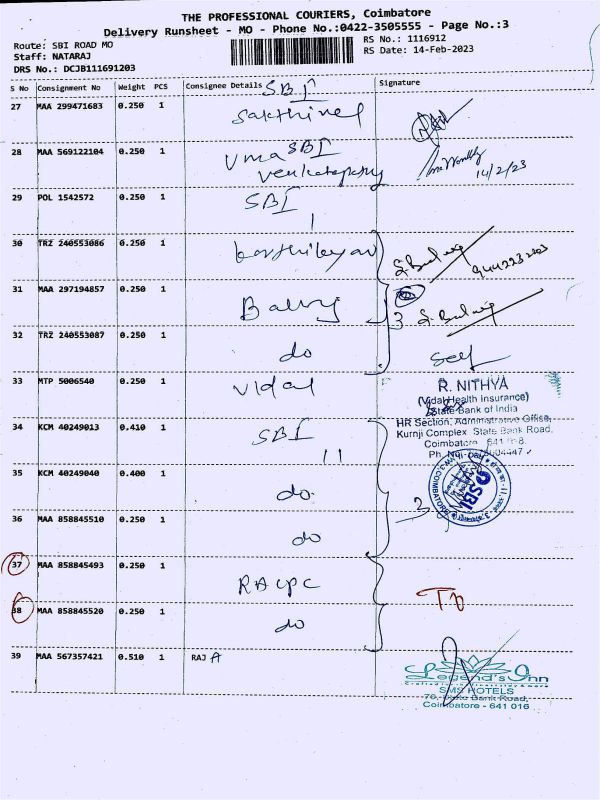 THE PROFESSIONAL COURIERS, Coimbatore
Delivery Runsheet - MO - Phone No.:0422-3505555 - Page No.:3
Route: SBI ROAD MO
RS No.: 1116912
Staff: NATARAJ
RS Date: 14-Feb-2023
DRS No.: DCJB111691203
S No Consignment No Weight PCS Consignee Details Signature
SBI
27 MAA 299471683 0.250 1 Sakthivel
28 MAA 569122104 0.250 1 Uma SBI
14/2/23
29 POL 1542572 0.250 1 SBI
30 TRZ 240553086 0.250 1
31 MAA 297194857 0.250 1
3
32 TRZ 240553087 0.250 1 do Self
33 MTP 5006540 0.250 1 Vidal
R. NITHYA
(Vidal Health Insurance)
State Bank of India
34 KCM 40249013 0.410 1 SBI
HR Section, Administrative Office,
Kurnji Complex State Bank Road,
Coimbatore
11
35 KCM 40249040 0.400 1 do
SBI
36 MAA 858845510 0.250 1 do
37 MAA 858845493 0.250 1 RACPC
38 MAA 858845520 0.250 1 do
39 MAA 567357421 0.510 1 RAJ A
Legend's Inn
SMS HOTELS
76, State Bank Road,
Coimbatore - 641 016